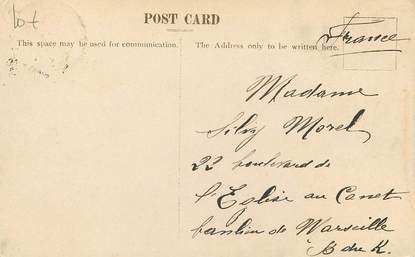 lot
POST CARD
This space may be used for communication.
The Address only to be written here.
France
Madame
Silvy Morel
22 boulevard de
l'Eglise au Canet
banlieu de Marseille
B du R.